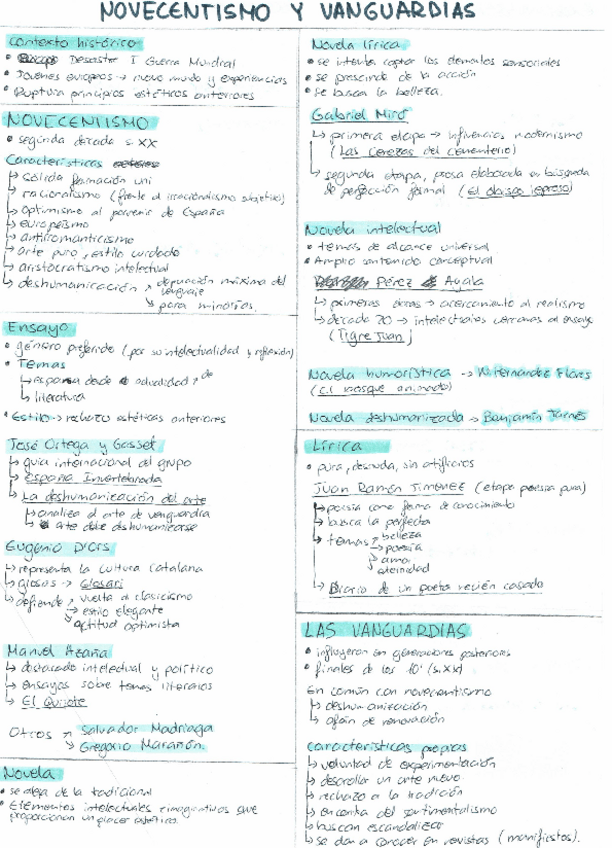 NOVECENTISMO Y VANGUARDIAS
Contexto histórico
• Desastre I Guerra Mundial
• Jóvenes europeos → nuevo mundo y experiencias
• Ruptura principios estéticos anteriores
NOVECENTISMO
• segunda década s. XX
Características
↳ sólida formación uni
↳ racionalismo (frente al irracionalismo subjetivo)
↳ Optimismo al porvenir de España
↳ europeísmo
↳ antirromanticismo
↳ arte puro, estilo cuidado
↳ aristocratismo intelectual
↳ deshumanización ↗ depuración máxima del
lenguaje
↘ para minorías.
Ensayo
• género preferido (por su intelectualidad y reflexión)
• Temas
↳ España desde actualidad
↳ literatura
• Estilo → rechazo estéticas anteriores
José Ortega y Gasset
↳ guía internacional del grupo
↳ España Invertebrada
↳ La deshumanización del arte
↳ analiza el arte de vanguardia
↳ arte debe deshumanizarse
Eugenio D'Ors
↳ representa la cultura catalana
↳ glosas → Glosari
↳ defiende ↗ vuelta al clasicismo
→ estilo elegante
↘ actitud optimista
Manuel Azaña
↳ destacado intelectual y político
↳ ensayos sobre temas literarios
↳ El Quijote
Otros ↗ Salvador Madriaga
↘ Gregorio Marañón.
Novela
• se aleja de la tradicional
• Elementos intelectuales e imaginativos que
proporcionan un placer estético.
Novela lírica
• se intenta captar los detalles sensoriales
• se prescinde de la acción
• se busca la belleza.
Gabriel Miró
↳ primera etapa → influencias modernismo
(Las cerezas del cementerio)
↳ segunda etapa, prosa elaborada en búsqueda
de perfección formal (El obispo leproso)
Novela intelectual
• temas de alcance universal
• Amplio contenido conceptual
Pérez de Ayala
↳ primeras obras → acercamiento al realismo
↳ década 20 → intelectuales cercanas al ensayo
(Tigre Juan)
Novela humorística → W. Fernández Flores
(El bosque animado)
Novela deshumanizada → Benjamín Jarnés
Lírica
• pura, desnuda, sin artificios
Juan Ramón Jiménez (etapa poesía pura)
↳ poesía como forma de conocimiento
↳ busca la perfecta
↳ temas ↗ belleza
→ poesía
↘ amor
↘ eternidad
↳ Diario de un poeta recién casado
LAS VANGUARDIAS
• influyeron en generaciones posteriores
• finales de los 10' (s. XX)
En común con novecentismo
↳ deshumanización
↳ afán de renovación
Características propias
↳ voluntad de experimentación
↳ desarrollar un arte nuevo
↳ rechazo a la tradición
↳ en contra del sentimentalismo
↳ buscan escandalizar
↳ se dan a conocer en revistas (manifiestos).